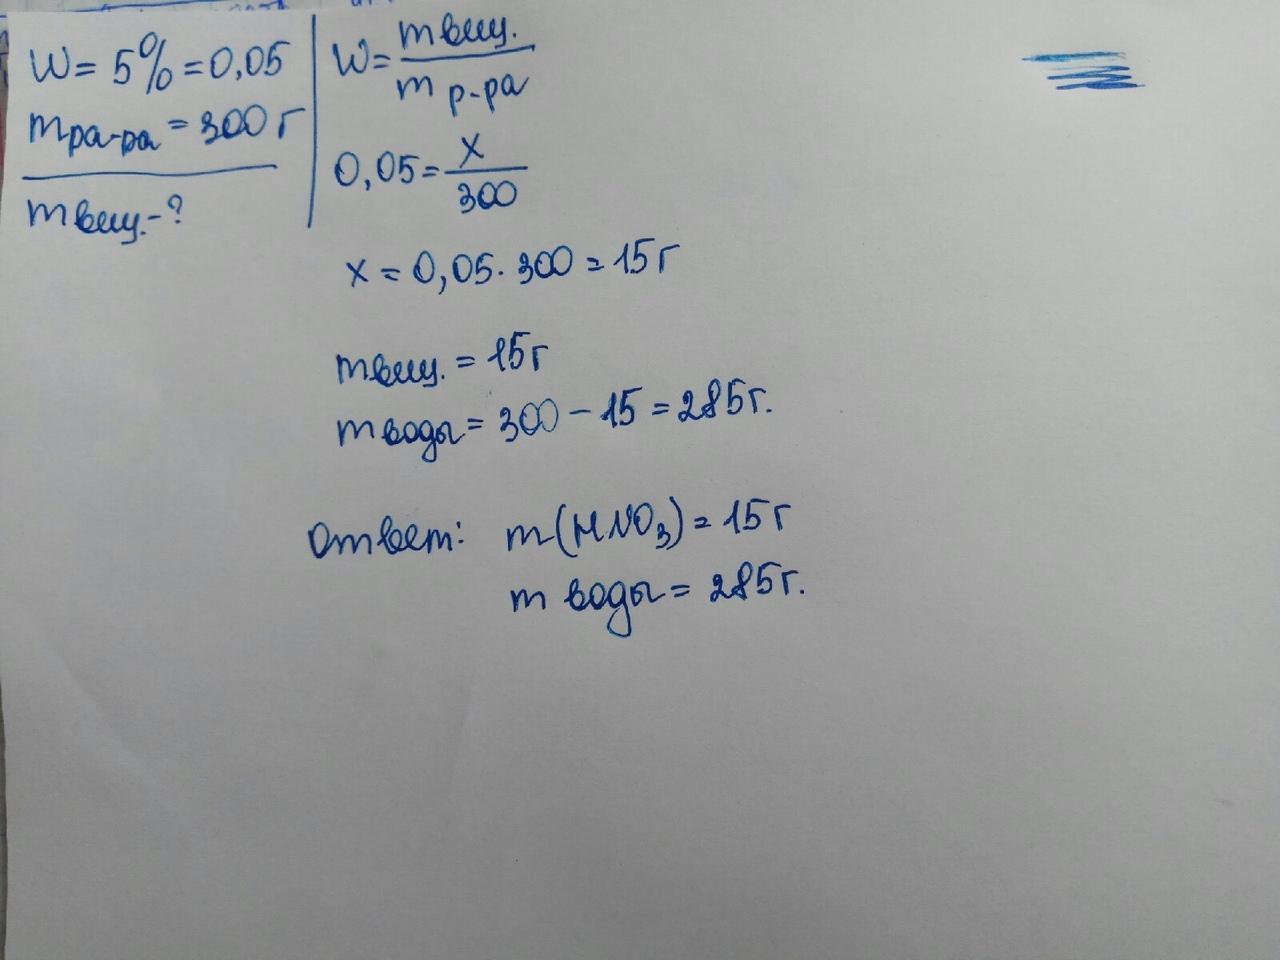 W = 5% = 0,05
mра-ра = 300 г
mвещ. - ?
W = mвещ. / m р-ра
0,05 = x / 300
x = 0,05 · 300 = 15 г
mвещ. = 15 г
mводы = 300 - 15 = 285 г.
Ответ: m(HNO₃) = 15 г
m воды = 285 г.